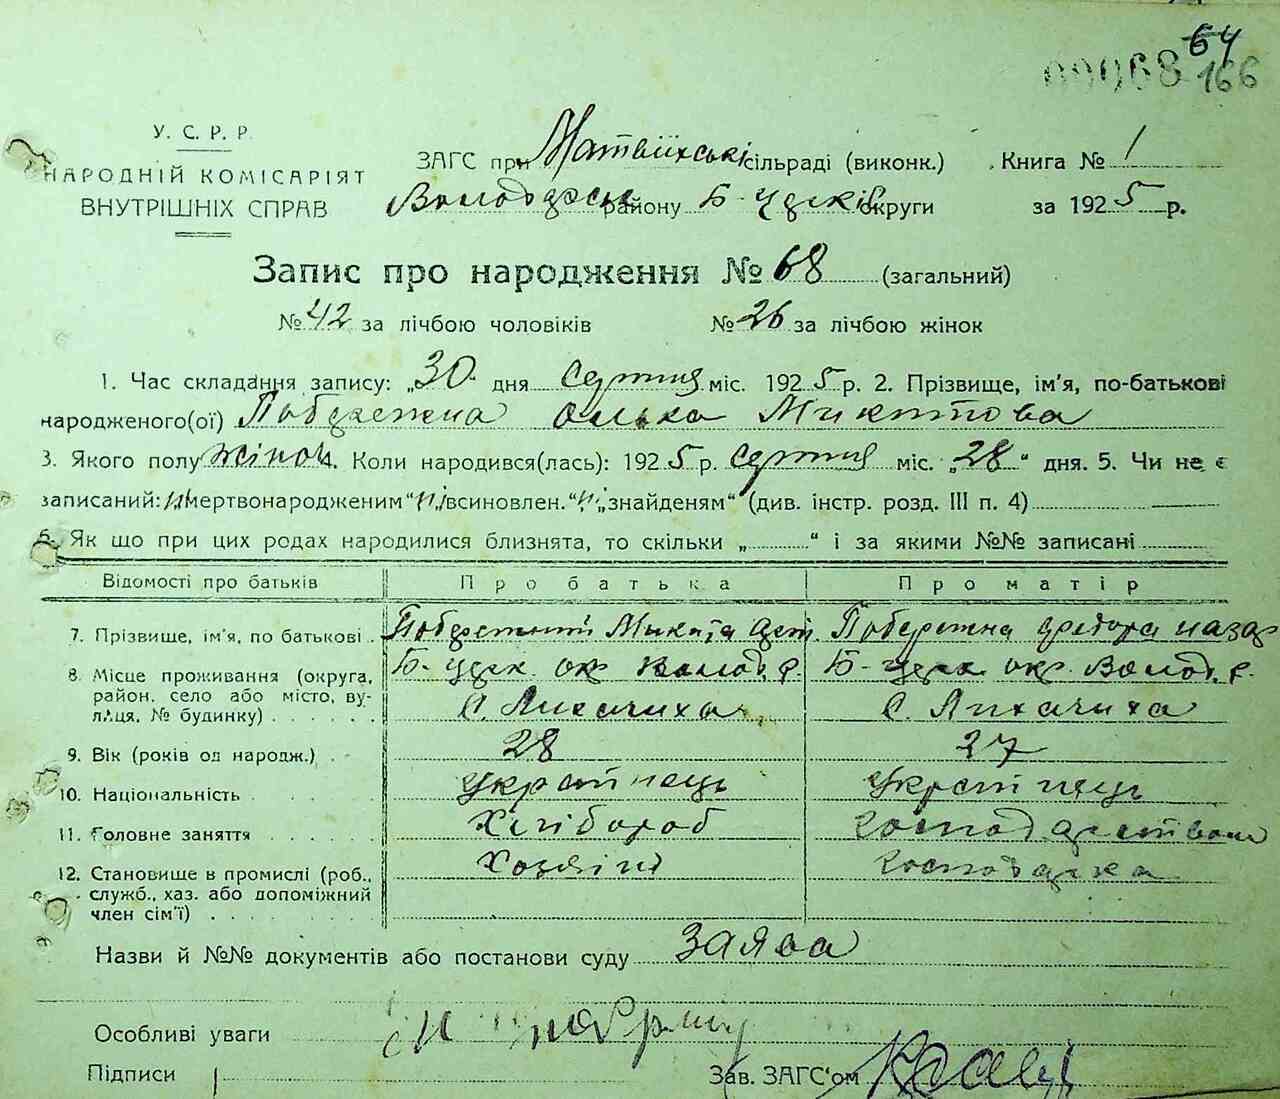 64
00068 166
У. С. Р. Р.
НАРОДНІЙ КОМІСАРІЯТ
ВНУТРІШНІХ СПРАВ
ЗАГС при Матвіїхській сільраді (виконк.)
Книга № 1
району Б-Церків округи
за 1925 р.
Запис про народження № 68 (загальний)
№ 42 за лічбою чоловіків № 26 за лічбою жінок
1. Час складання запису: „30" дня Серпня міс. 1925 р. 2. Прізвище, ім'я, по-батькові
народженого(ої) Побережна Олька Микитова
3. Якого полу жіноч. 4. Коли народився(лась): 1925 р. Серпня міс. „28" дня. 5. Чи не є
записаний: ні „мертвонародженим" ні „всиновлен." ні „знайденям" (див. інстр. розд. III п. 4)
6. Як що при цих родах народилися близнята, то скільки „ " і за якими №№ записані
Відомості про батьків Про батька Про матір
7. Прізвище, ім'я, по батькові Микита Побережна Федора Назар
8. Місце проживання (округа, Б-Церк. окр. Волод. р. Б-Церк. окр. Волод. р.
район, село або місто, ву-
лиця, № будинку) С. Лихачиха С. Лихачиха
9. Вік (років од народж.) 28 27
10. Національність Українець Українець
11. Головне заняття Хлібороб
12. Становище в промислі (роб., Хозяїн Господарка
служб., хаз. або допоміжний
член сім'ї)
Назви й №№ документів або постанови суду Заява
Особливі уваги
Підписи
Зав. ЗАГС'ом